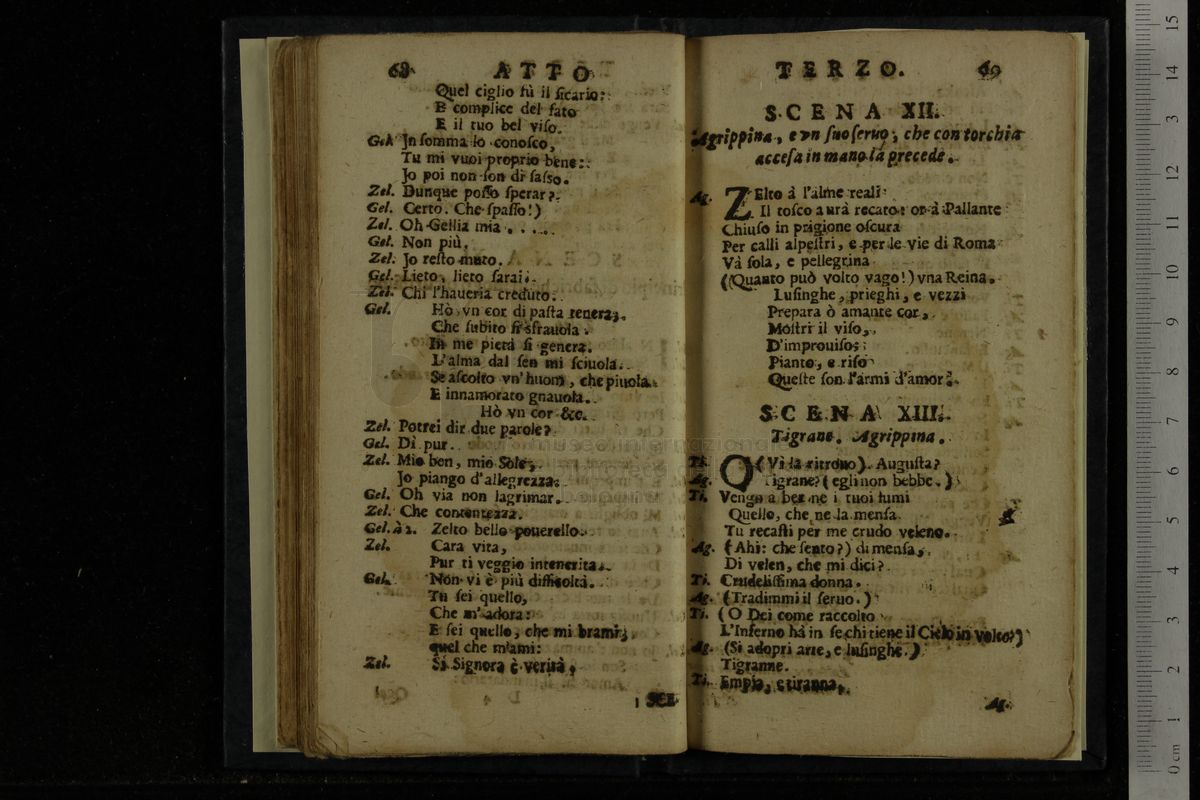 68 ATTO
Quel ciglio fù il ſicario:
E complice del fato
E il tuo bel viſo.
Gel. Jn ſomma lo conoſco,
Tu mi vuoi proprio bene:
Jo poi non ſon di ſaſſo.
Zel. Dunque poſſo ſperar?
Gel. Certo. Che ſpaſſo!)
Zel. Oh Gellia mia . . . . .
Gel. Non più,
Zel. Jo reſto muto.
Gel. Lieto, lieto ſarai.
Zel. Chi l'haueria creduto.
Gel. Hò vn cor di paſta tenera,
Che ſubito ſi sfrauola.
In me pietà ſi genera.
L'alma dal ſen mi ſciuola.
Se aſcolto vn'huom, che piuola
E innamorato gnauola.
Hò vn cor &c.
Zel. Potrei dir due parole?
Gel. Dì pur.
Zel. Mio ben, mio Sole,
Jo piango d'allegrezza.
Gel. Oh via non lagrimar.
Zel. Che contentezza.
Gel. à 2. Zelto bello pouerello.
Zel. Cara vita,
Pur ti veggio intenerita.
Gel. Non vi è più difficoltà.
Tu ſei quello,
Che m'adora:
E ſei quello, che mi brami,
quel che m'ami:
Zel. Sì Signora è verità,
SCE-
TERZO. 69
SCENA XII.
Agrippina, e vn ſuo ſeruo, che con torchia
acceſa in mano la precede.
Ag. ZElto à l'alme reali
Il toſco aurà recato: or à Pallante
Chiuſo in prigione oſcura
Per calli alpeſtri, e per le vie di Roma
Và ſola, e pellegrina
(Quanto può volto vago!) vna Reina.
Luſinghe, prieghi, e vezzi
Prepara ò amante cor,
Moſtri il viſo,
D'improuiſo
Pianto, e riſo
Queſte ſon l'armi d'amor.
SCENA XIII.
Tigrane. Agrippina.
Ti. O(Vì la ritrouo). Auguſta?
Ag. Tigrane? (egli non bebbe.)
Ti. Vengo a ber ne i tuoi lumi
Quello, che ne la menſa
Tu recaſti per me crudo veleno.
Ag. (Ahi: che ſento?) di menſa,
Di velen, che mi dici?
Ti. Crudeliſſima donna.
Ag. (Tradimmi il ſeruo.)
Ti. (O Dei come raccolto
L'Inferno hà in ſe chi tiene il Cielo in volto?)
Ag. (Si adopri arte, e luſinghe.)
Tigranne.
Ti. Empia, e tiranna,
Ag.